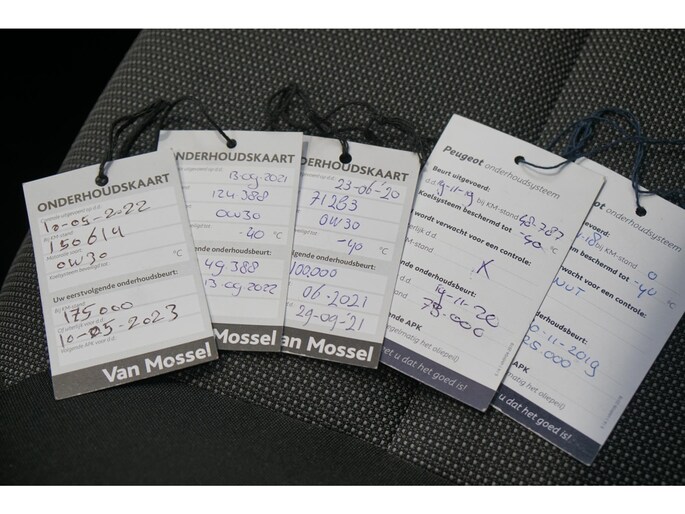 ONDERHOUDSKAART
10-05-2022
150614
Motorolie soort
0W30
°C
Uw eerstvolgende onderhoudsbeurt:
175.000
10-05-2023
Volgende APK voor d.d.
Van Mossel
NDERHOUDSKAART
13-09-2021
124 388
0W30
-40 °C
gende onderhoudsbeurt:
49 388
13-09-2022
an Mossel
NDERHOUDSKAART
23-06-'20
71283
0W30
-40 °C
olgende onderhoudsbeurt:
100.000
06-2021
29-09-'21
an Mossel
Peugeot onderhoudsysteem
Beurt uitgevoerd:
d.d. 19-11-19 bij KM-stand 48-787
Koelsysteem beschermd tot -40 °C
wordt verwacht voor een controle:
X
nde onderhoudsbeurt:
19-11-20
75.000
nde APK
egelmatig het oliepeil)
et u dat het goed is!
onderhoudsysteem
oerd:
bij KM-stand 0
em beschermd tot -40 °C
wacht voor een controle:
onderhoudsbeurt:
-11-2019
25.000
APK
atig het oliepeil)
u dat het goed is!